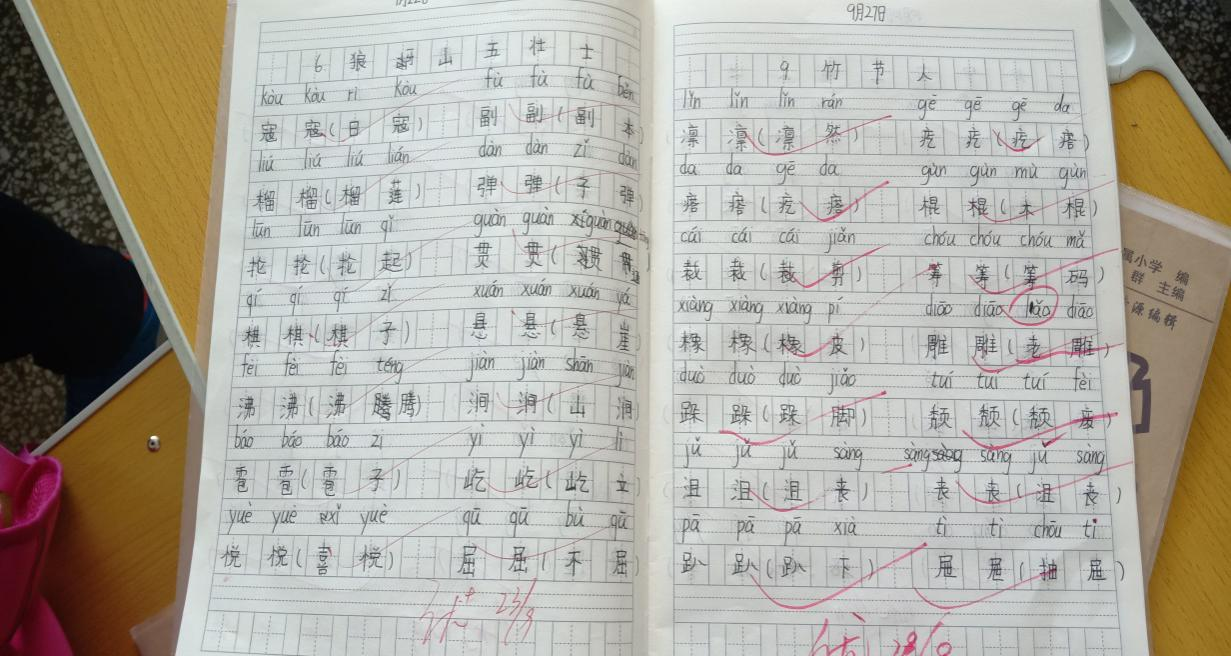 6.狼牙山五壮士
kòu kòu rì kòu fù fù fù běn
寇寇(日寇) 副副(副本)
liú liú liú lián dàn dàn zǐ dàn
榴榴(榴莲) 弹弹(子弹)
lūn lūn lūn qǐ guàn guàn
抡抡(抡起) 贯贯(
qí qí qí zǐ xuán xuán xuán yá
棋棋(棋子) 悬悬(悬崖
fèi fèi fèi téng jiàn jiàn shān jiàn
沸沸(沸腾腾) 涧涧(山涧)
báo báo báo zi yì yì yì lì
雹雹(雹子) 屹屹(屹立
yuè yuè xǐ yuè qū qū bù qū
悦悦(喜悦) 屈屈(不屈)
23/9
9月27日
9.竹节人
lǐn lǐn lǐn rán gē gē gē da
凛凛(凛然) 疙疙(疙瘩)
da da gē da gùn gùn mù gùn
瘩瘩(疙瘩) 棍棍(木棍)
cái cái cái jiǎn chóu chóu chóu mǎ
裁裁(裁剪) 筹筹(筹码)
xiàng xiàng xiàng pí diāo diāo lǎo diāo
橡橡(橡皮) 雕雕(老雕)
duò duò duò jiǎo tuí tuí tuí fèi
跺跺(跺脚) 颓颓(颓废)
jǔ jǔ jǔ sàng sàng sàng jǔ sàng
沮沮(沮丧) 丧丧(沮丧)
pā pā pā xià tì tì chōu tì
趴趴(趴下) 屉屉(抽屉)
属小学 编
群 主编
源编辑